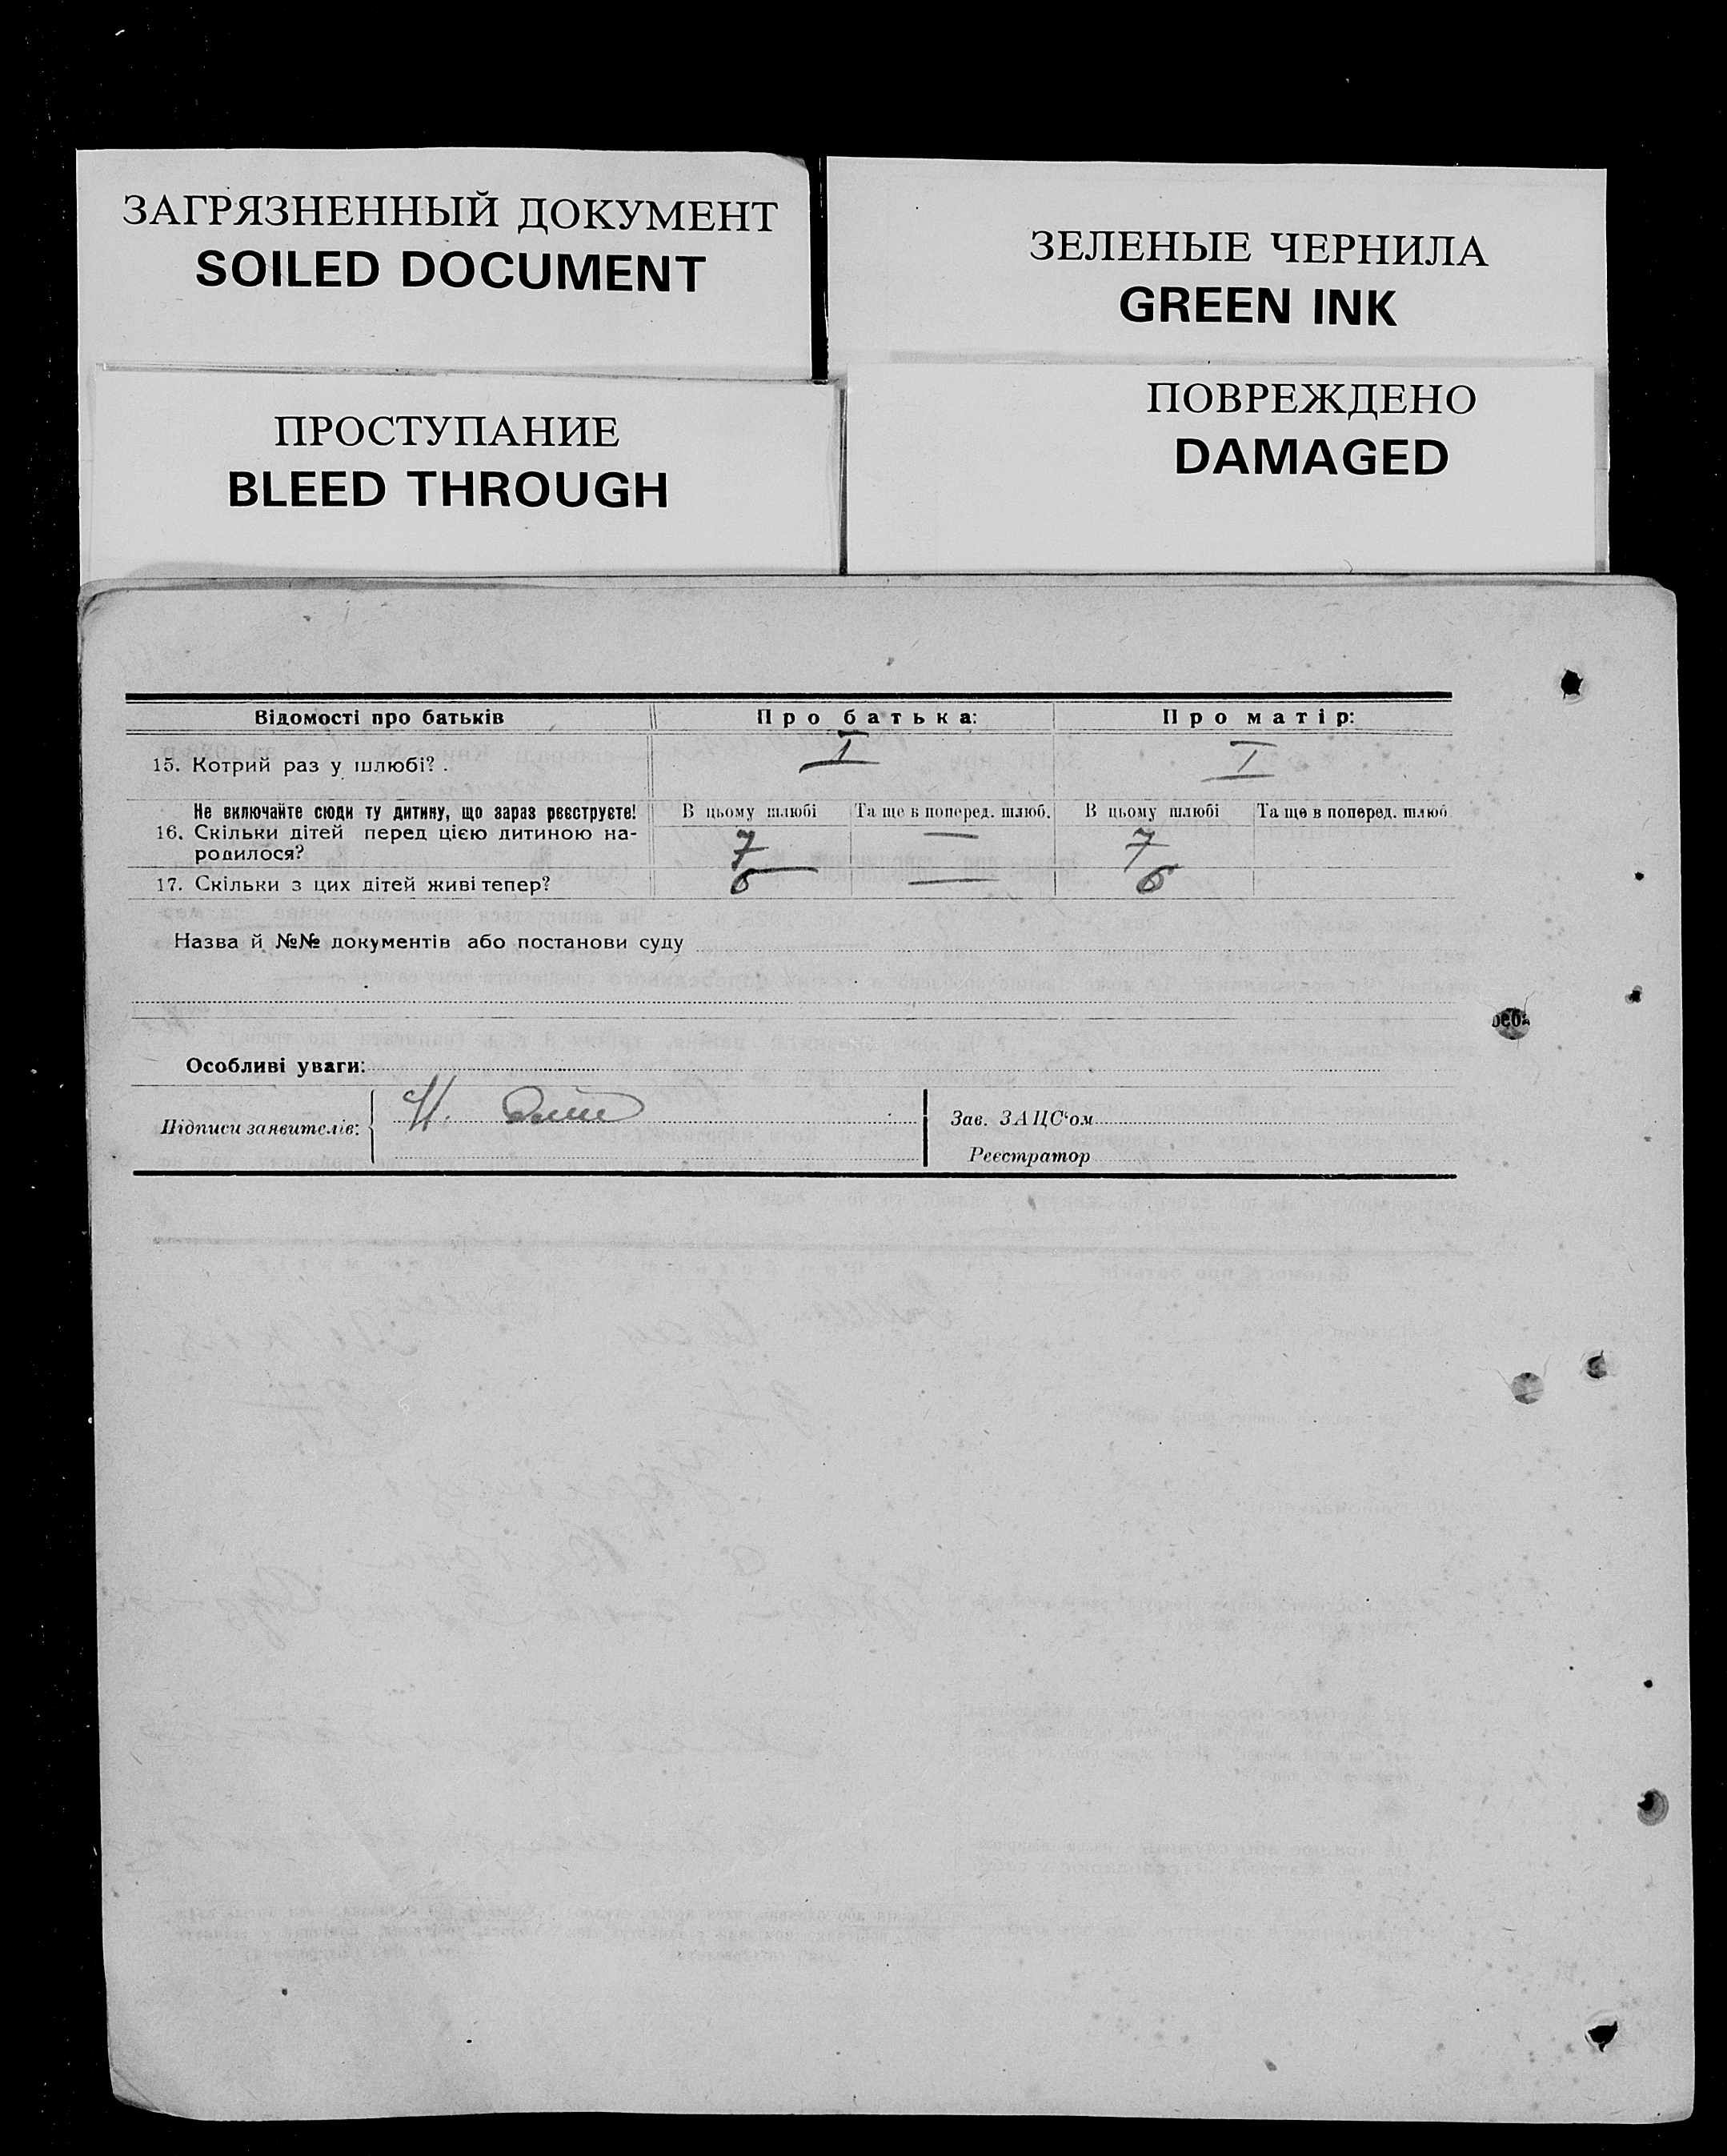 ЗАГРЯЗНЕННЫЙ ДОКУМЕНТ
SOILED DOCUMENT
ЗЕЛЕНЫЕ ЧЕРНИЛА
GREEN INK
ПРОСТУПАНИЕ
BLEED THROUGH
ПОВРЕЖДЕНО
DAMAGED
Відомості про батьків Про батька: Про матір:
15. Котрий раз у шлюбі? . I I
Не включайте сюди ту дитину, що зараз реєструєте! В цьому шлюбі Та ще в поперед. шлюб. В цьому шлюбі Та ще в поперед. шлюб
16. Скільки дітей перед цією дитиною на- 7 — 7
родилося?
17. Скільки з цих дітей живі тепер? 6 — 6
Назва й №№ документів або постанови суду
Особливі уваги:
Підписи заявителів: Н. Зав. ЗАЦС'ом
Реєстратор